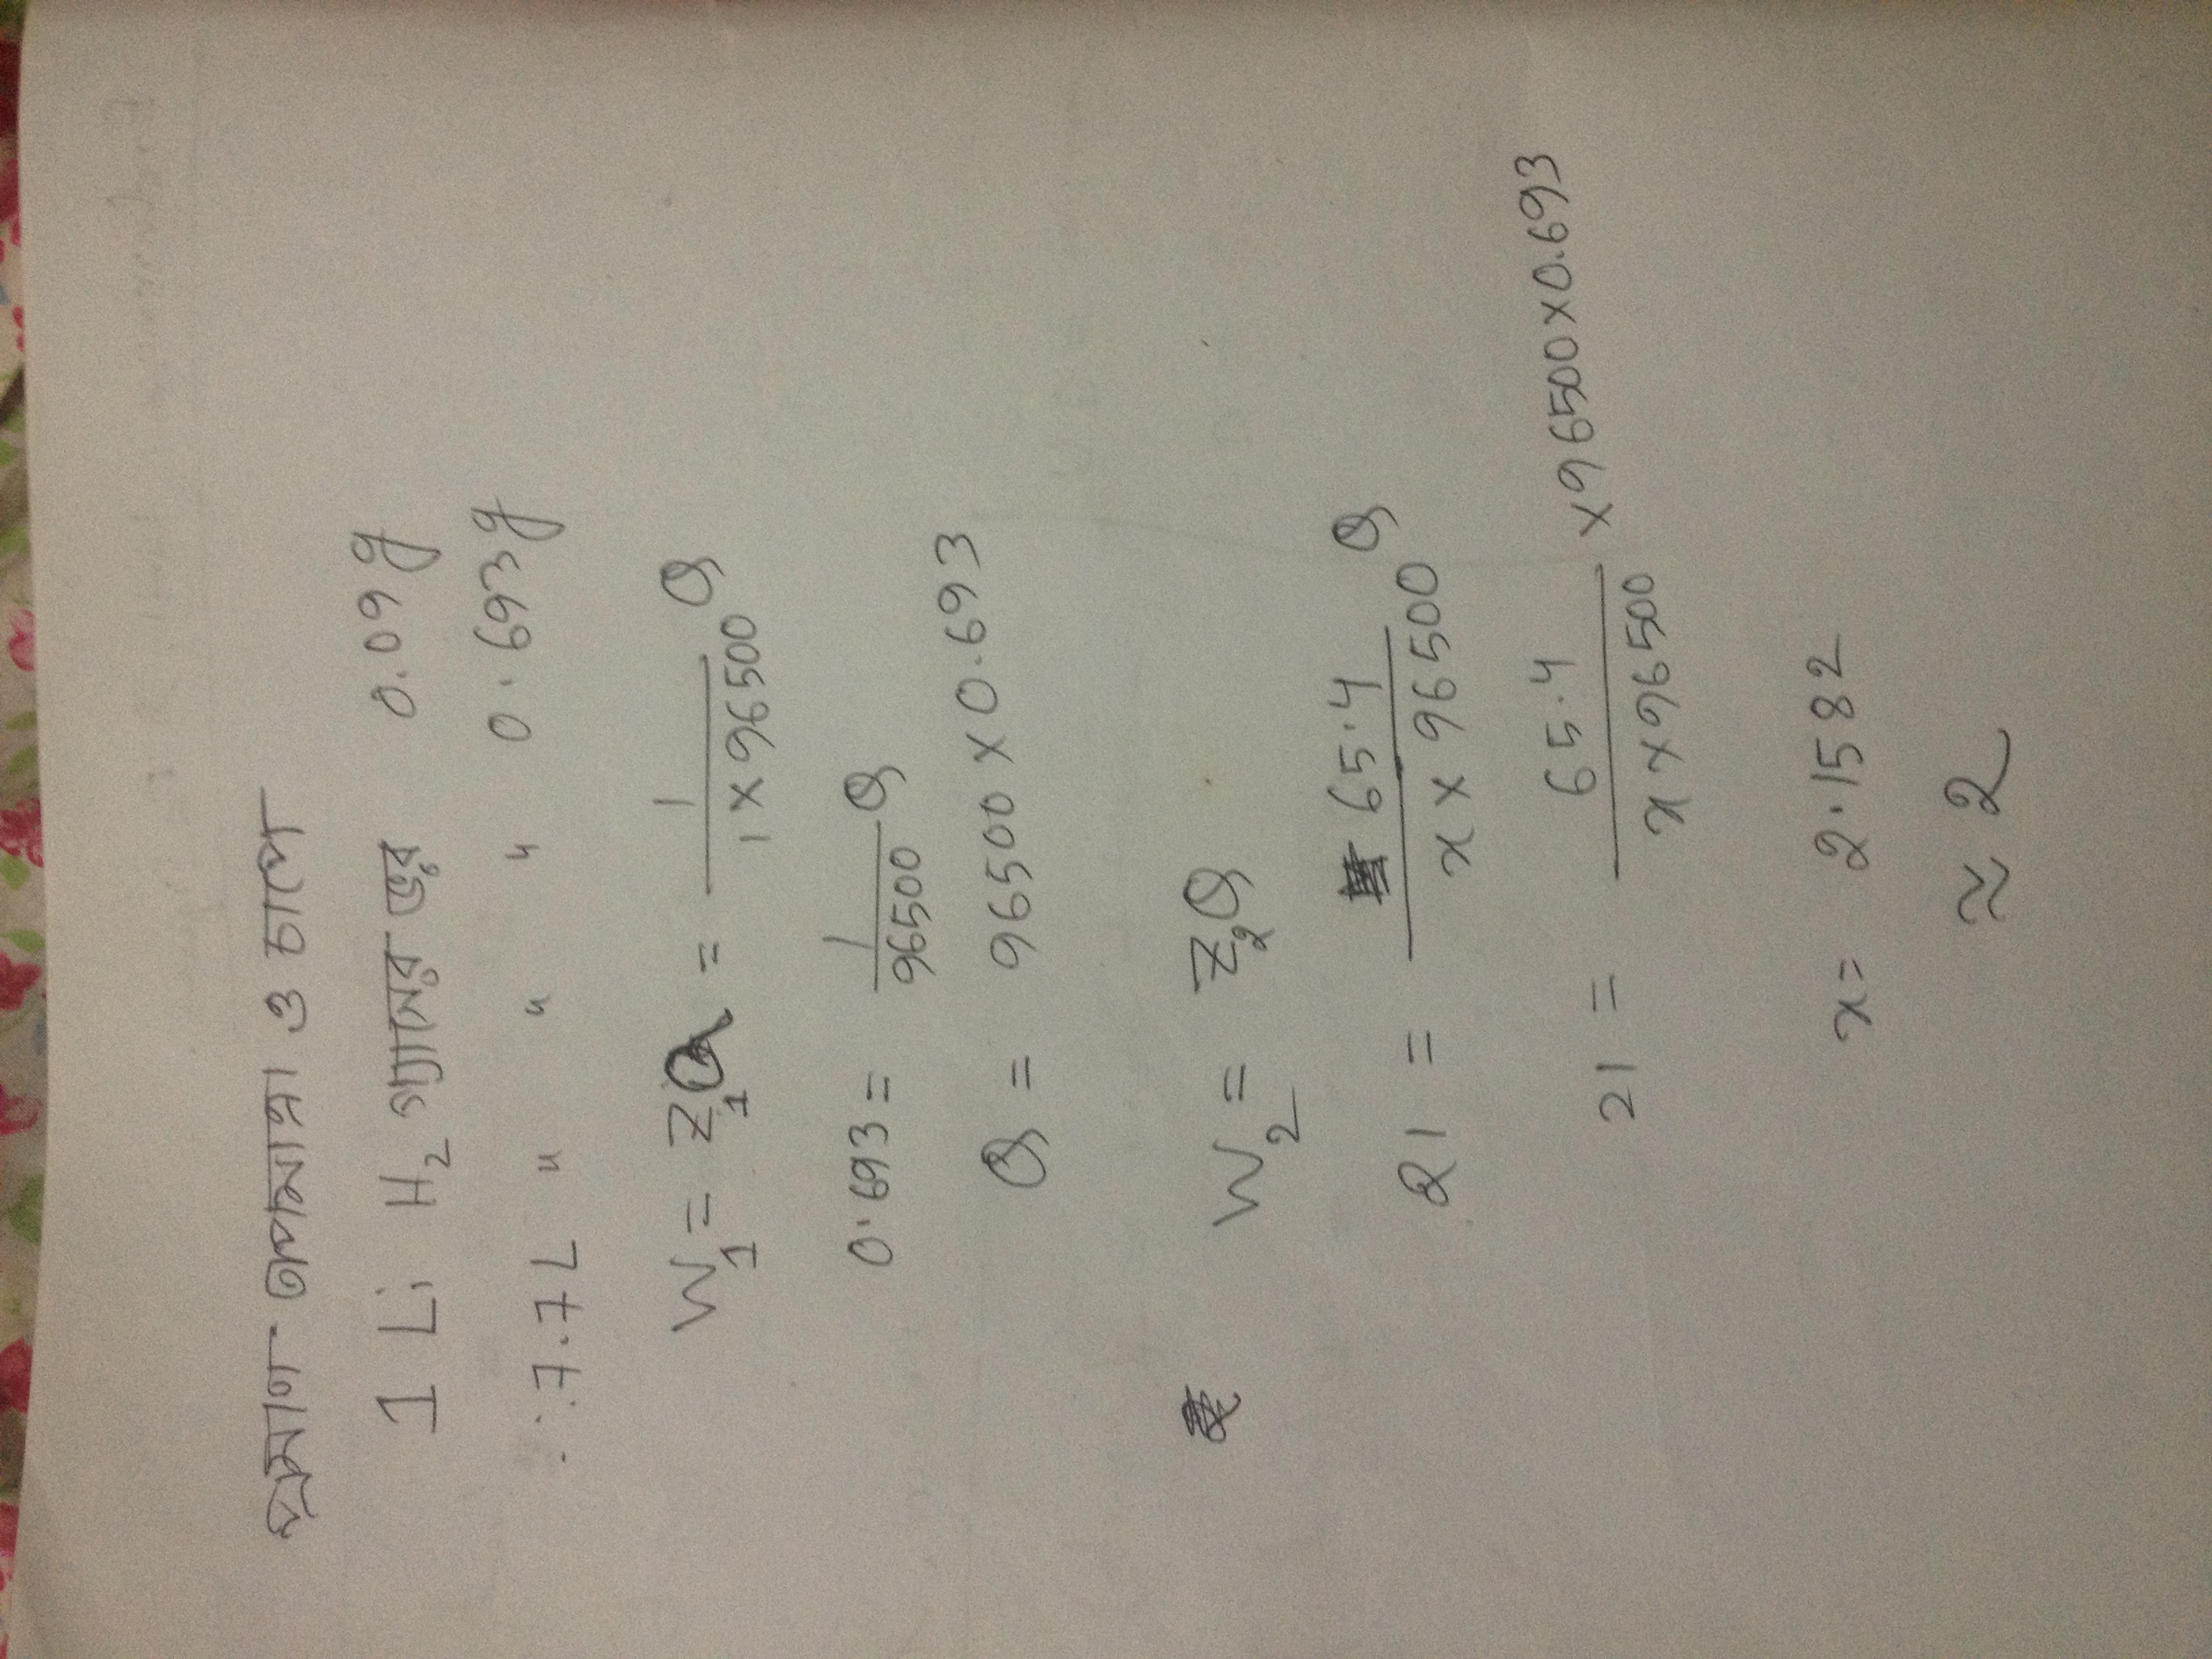 প্রমাণ তাপমাত্রা ও চাপে
1 Li H₂ গ্যাসের ভর 0.09 g
∴ 7.7 L " " " 0.693 g
W₁ = Z₁Q = 1/(1 × 96500) Q
0.693 = 1/96500 Q
Q = 96500 × 0.693
W₂ = Z₂Q
21 = 65.4/(x × 96500) Q
21 = 65.4/(x × 96500) × 96500 × 0.693
x = 2.1582
≈ 2